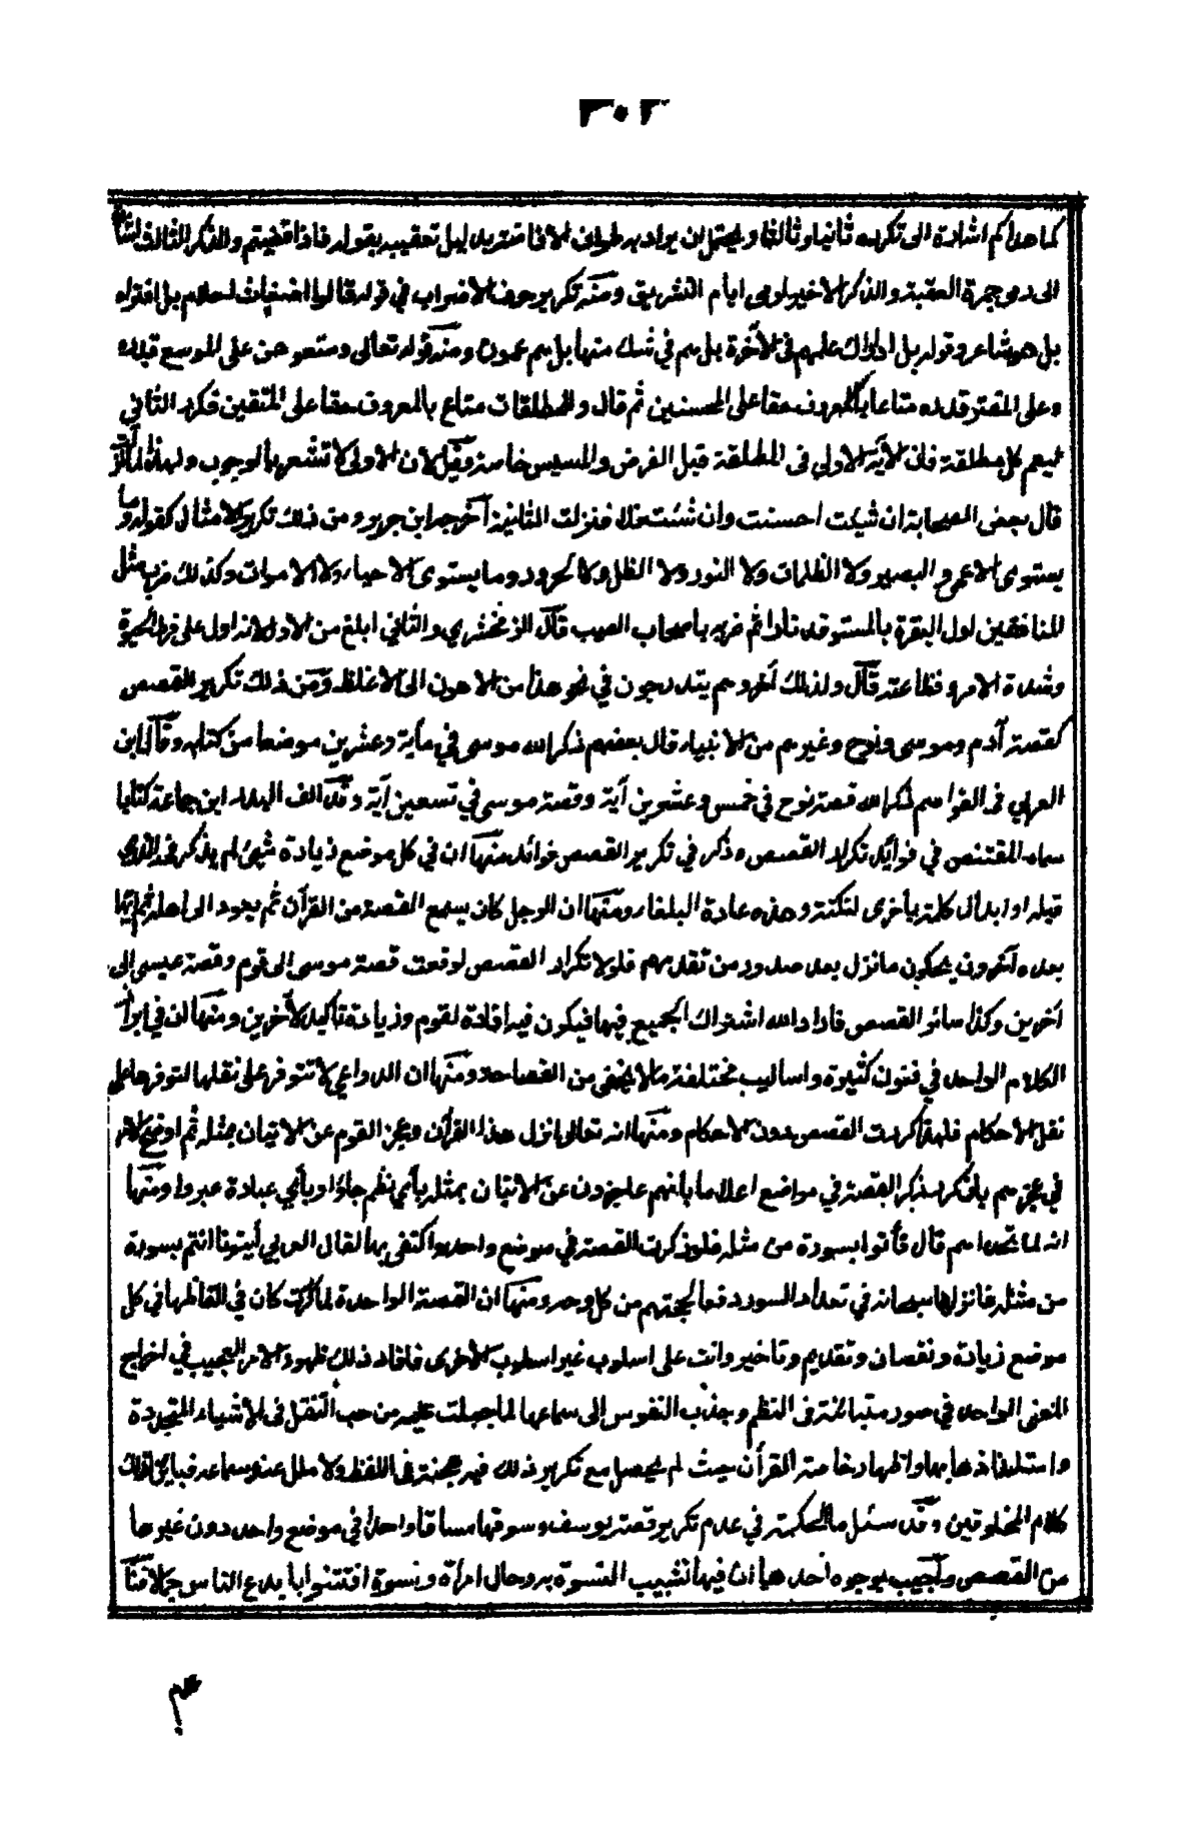 ٣٠٢
كما هداكم اشارة الى تكرره ثانيا وثالثا ويحتمل ان يراد به طواف الافاضة بدليل تعقيبه بقوله فاذا قضيتم والذكر الثالث اشارة
الى رمى جمرة العقبة والذكر الاخير لرمى ايام التشريق ومنه تكرير حرف الاضراب في قوله قالوا اضغاث احلام بل افتراه
بل هو شاعر وقوله بل ادارك علمهم فى الآخرة بل هم في شك منها بل هم عمون ومنه قوله تعالى ومتعوهن على الموسع قدره
وعلى المقتر قدره متاعا بالمعروف حقا على المحسنين ثم قال وللمطلقات متاع بالمعروف حقا على المتقين فكرر الثاني
ليعم كل مطلقة فان الآية الاولى فى المطلقة قبل الفرض والمسيس خاصة وقيل لان الاولى لا تشعر بالوجوب ولهذا لما نزلت
قال بعض الصحابة ان شئت احسنت وان شئت فلا فنزلت الثانية اخرجه ابن جرير ومن ذلك تكرير الامثال كقوله وما
يستوى الاعمى والبصير ولا الظلمات ولا النور ولا الظل ولا الحرور وما يستوى الاحياء ولا الاموات وكذلك ضرب مثل
المنافقين اول البقرة بالمستوقد نارا ثم ضربه باصحاب الصيب قال الزمخشري والثاني ابلغ من الاول لانه ادل على فرط الحيرة
وشدة الامر وفظاعته قال ولذلك اخر وهم يتدرجون في نحو هذا من الاهون الى الاغلظ ومن ذلك تكرير القصص
كقصة آدم وموسى ونوح وغيرهم من الانبياء قال بعضهم ذكر الله موسى في مأية وعشرين موضعا من كتابه وقال ابن
العربي فى القواصم ذكر الله قصة نوح في خمس وعشرين آية وقصة موسى في تسعين آية وقد الف البدر ابن جماعة كتابا
سماه المقتنص في فوائد تكرار القصص وذكر في تكرير القصص فوائد منها ان في كل موضع زيادة شيئ لم يذكر فى الذى
قبله او ابدال كلمة بأخرى لنكتة وهذه عادة البلغاء ومنها ان الرجل كان يسمع القصة من القرآن ثم يعود الى اهله ثم يهاجر
بعده آخرون يحكون ما نزل بعد صدور من تقدمهم فلولا تكرار القصص لوقعت قصة موسى الى قوم وقصة عيسى الى
آخرين وكذا سائر القصص فاراد الله اشتراك الجميع فيها فيكون فيه افادة لقوم وزيادة تأكيد لآخرين ومنها ان في ابراز
الكلام الواحد في فنون كثيرة واساليب مختلفة ما لا يخفى من الفصاحة ومنها ان الدواعى لا تتوفر على نقلها لتوفرها على
نقل الاحكام فلهذا كررت القصص دون الاحكام ومنها انه تعالى انزل هذا القرآن وعجز القوم عن الاتيان بمثله ثم اوضح الامر
في عجزهم بان كرر ذكر القصة في مواضع اعلاما بانهم عاجزون عن الاتيان بمثله بأي نظم جاؤا وبأي عبارة عبروا ومنها
انه لما تحداهم قال فأتوا بسورة من مثله فلو ذكرت القصة في موضع واحد واكتفى بها لقال العربي أيتونا انتم بسورة
من مثله فانزلها سبحانه في تعداد السور دفعا لحجتهم من كل وجه ومنها ان القصة الواحدة لما كررت كان في الفاظها في كل
موضع زيادة ونقصان وتقديم وتاخير واتت على اسلوب غير اسلوب الاخرى فافاد ذلك ظهور الامر العجيب في اخراج
المعنى الواحد في صور متباينة فى النظم وجذب النفوس إلى سماعها لما جبلت عليه من حب التنقل فى الاشياء المتجددة
واستلذاذها بها واظهار خاصة القرأن حيث لم يحصل مع تكرير ذلك فيه هجنة فى اللفظ ولا ملل عند سماعه فباين ذلك
كلام المخلوقين وقد سئل ما الحكمة في عدم تكرير قصة يوسف وسوقها مساقا واحدا في موضع واحد دون غيرها
من القصص واجيب بوجوه احدها ان فيها تشبيب النسوة به وحال امرأة ونسوة افتتنوا بابدع الناس جمالا